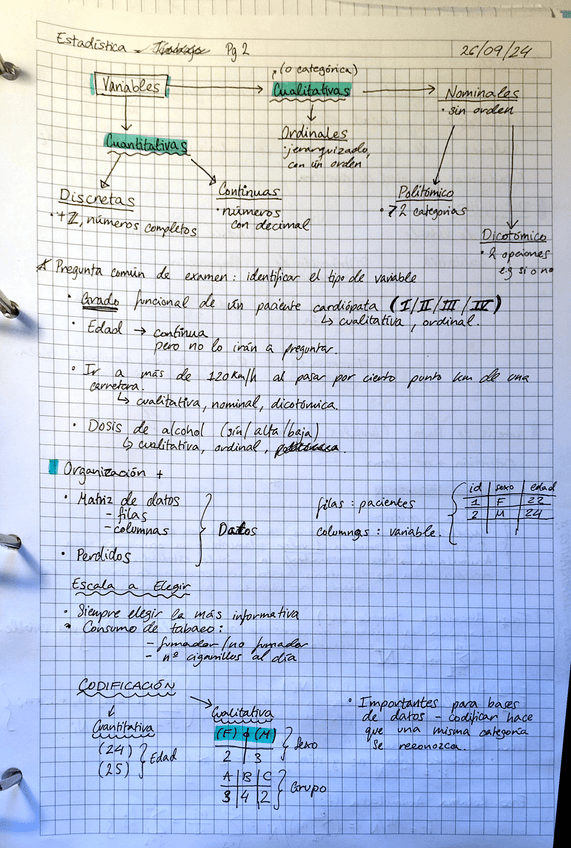 Estadística Pg 2 26/09/24
(o categórica)
Variables Cualitativas Nominales
· sin orden
Ordinales
· jerarquizado,
con un orden
Cuantitativas
Discretas
· +Z, números completos
Continuas
· números
con decimal
Politómico
· >2 categorias
Dicotómico
· 2 opciones
eg si o no
* Pregunta común de examen: identificar el tipo de variable
· Grado funcional de un paciente cardiópata (I/II/III/IV)
↳ cualitativa, ordinal.
· Edad → continua
pero no lo irán a preguntar.
· Ir a más de 120km/h al pasar por cierto punto km de una
carretera.
↳ cualitativa, nominal, dicotómica.
· Dosis de alcohol (sin/alta/baja)
↳ cualitativa, ordinal,
Organización +
· Matriz de datos
- filas
- columnas
· Perdidos
Datos
filas: pacientes
columnas: variable.
id sexo edad
1 F 22
2 M 24
Escala a Elegir
· Siempre elegir la más informativa
· Consumo de tabaco:
- fumador/no fumador
- nº cigarrillos al día
CODIFICACIÓN
Cuantitativa
(24)
(25)
Edad
Cualitativa
(F) o (M)
2 3
Sexo
A B C
3 4 2
Grupo
· Importantes para bases
de datos - codificar hace
que una misma categoría
se reconozca.